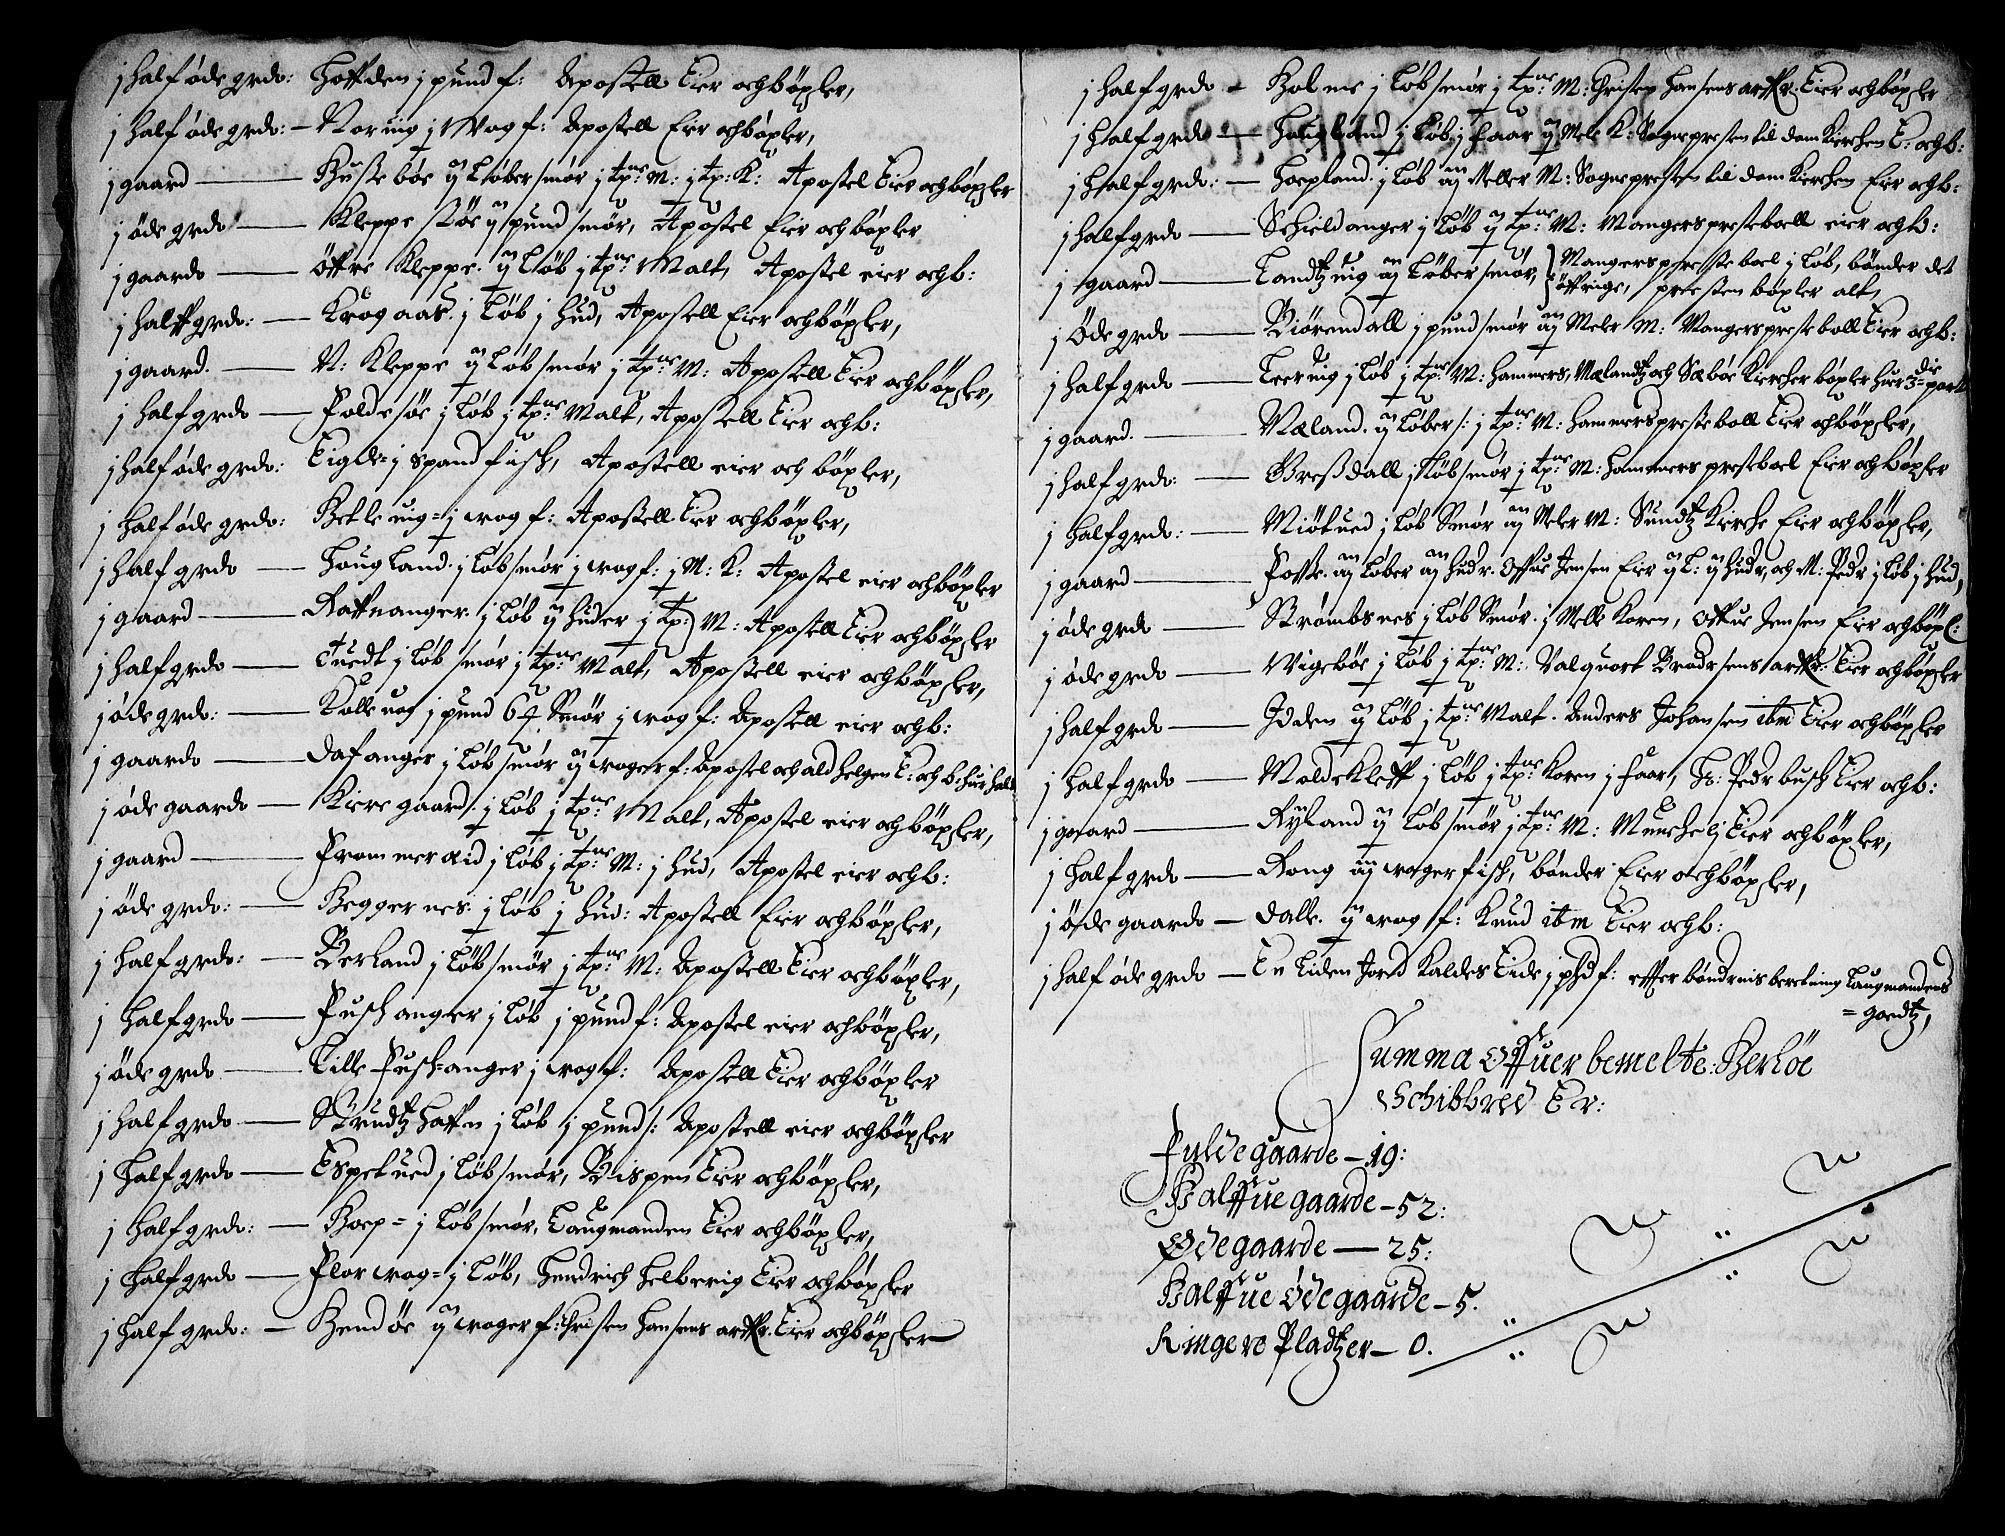 j half øde grdr: Hoffden j pund f: Apostell Eier och bøxler,
j half øde grdr: — Noruig j Wog f: Apostell Eier och bøxler,
j gaard — Husebøe ij Løber smør j tp: M: j tp: K: Apostel Eier och bøxler
j øde grdr — Kleppe støe ij pund smør, Apostel Eier och bøxler
j gaardr — Øffre Kleppe ij Løb j tpne Malt, Apostel eier och b:
j halff grdr: — Krogaas j Løb j hud, Apostell Eier och bøxler,
j gaard. — N: Kleppe ij Løb smør j tpne M: Apostell Eier och bøxler,
j half grdr — Foldesøe j Løb j tpne Malt, Apostell Eier och b:
j half øde grdr: Eigle = j spand fisch, Apostell eier och bøxler,
j half øde grdr: Bekleuig = j wog f: Apostell Eier och bøxler,
j half grdr — Hougland j Løb smør j wog f: j M: K: Apostel eier och bøxler
j gaard — Raffnanger j Løb ij huder j tp: M: Apostell Eier och bøxler
j half grdr — Tuedt j Løb smør j tpne Malt, Apostell eier och bøxler,
j øde grdr: — j pund Smør j wog f: Apostell eier och b:
j gaardr — Dafanger j Løb smør ij woger f: Apostel och ald helgen E: och b: huer halt
j øde gaardr — Kieregaard j Løb j tpne Malt, Apostel eier och bøxler,
j gaard — Frommereid j Løb j tpne M: j hud, Apostel eier och b:
j øde grdr: — Beggernes j Løb j hud: Apostell Eier och bøxler,
j half grdr: — Berland j Løb smør j tpne M: Apostell Eier och bøxler,
j half grdr — Fuschanger j Løb j pund f: Apostel eier och bøxler,
j øde grdr — Lille Fuschanger j wog f: Apostell Eier och bøxler
j half grdr — Strudtzhaffn j Løb j pund s: Apostell eier och bøxler
j half grdr — Espetued j Løb smør, Bispen Eier och bøxler,
j half grdr: — Hoep = j Løb smør, Laugmanden Eier och bøxler,
j half grdr — Florwog = j Løb, Hendrich Helberig Eier och bøxler
j half grdr: — Hendøe ij woger f: Christen Hansens arffr: Eier och bøxler
j half grdr — Holme j Løb smør j tpne M: Christen Hansens arffr: Eier och bøxler
j half grdr — Hougland j Løb j faar ij Mele K: Sognepresten til dom Kierchen E: och b:
j half grdr: — Hoepland j Løb iiij Meller M: Sognepresten til dom Kierchen Eier och b:
j half grdr — Schieldanger j Løb ij tpne M: Mangers presteboell eier och b:
j gaard — Landtzuig iij Løber smør, Mangers presteboel j Løb, bønder det
øffrige, presten bøxler alt,
j øde grdr — Biørendall j pund smør iiij Meler M: Mangers presteboll Eier och b:
j half grdr — Leeruig j Løb j tpne M: Hammers, Mælandtz och Sæbøe Kiercher bøxler huer 3die part
j gaard. — Mæland. ij Løber s: j tpne M: Hammers presteboll Eier och bøxler,
j half grdr: — Bressdall j Løb smør j tpne M: Hammers presteboel Eier och bøxler
j half grdr: — Miøtued j Løb Smør iiij Meler M: Sundtz Kierche Eier och bøxler,
j gaard — Fosse iij Løber iij hudr. Offue Jensen Eier ij L: ij hudr, och M: Pedr j Løb j hud,
j øde grdr — Strømbsnes j Løb Smør j Melle Koren, Offue Jensen Eier och bøxl:
j øde grdr — Wigebøe j Løb j tpne M: Valguort Brodrsens arffr: Eier och bøxler
j half grdr — Idden ij Løb j tpne Malt. Anders Johansen ibm Eier och bøxler
j half grdr — Moldekleff j Løb j tpne Koren j faar, Hr: Pedr busch Eier och b:
j gaard — Ryland ij Løb smør j tpne M: Munchelij Eier och bøxler,
j half grdr — Rong iiij woger fisch, bønder Eier och bøxler,
j øde gaardr — Dalle. ij wog f: Knud ibm Eier och b:
j half øde grdr — En Liden Jord Kaldes Eide j phd f: effter bøndrnis beretning Laugmandens
= goedtz,
Summa Offuer bemelte: Herløe
Schibbred Er:
Fulde gaarde — 19:
Halffue gaarde — 52:
Ødegaarde — 25:
Halffue Ødegaarde — 5.
Ringere Pladtzer — 0.